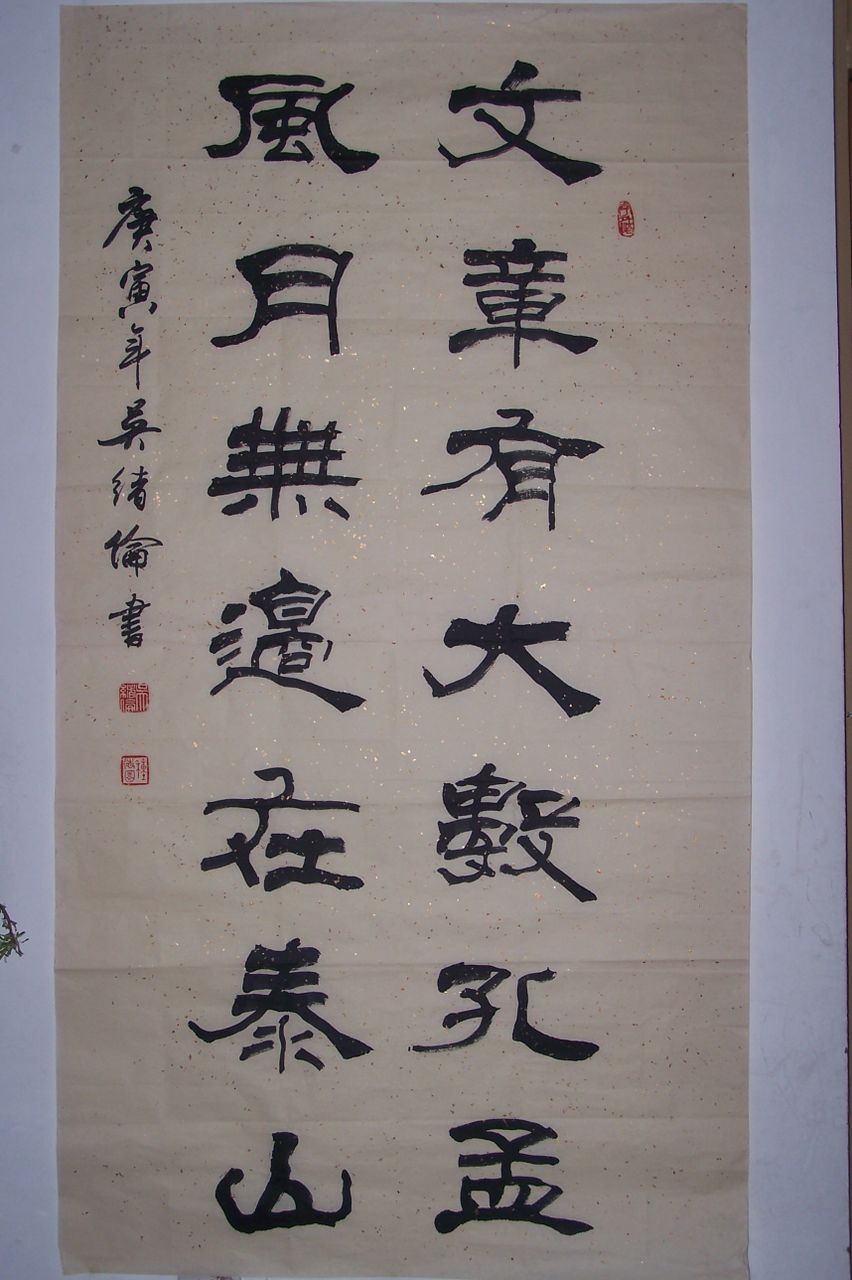 文章有大數孔孟
風月無邊在泰山
庚寅年吳緒倫書